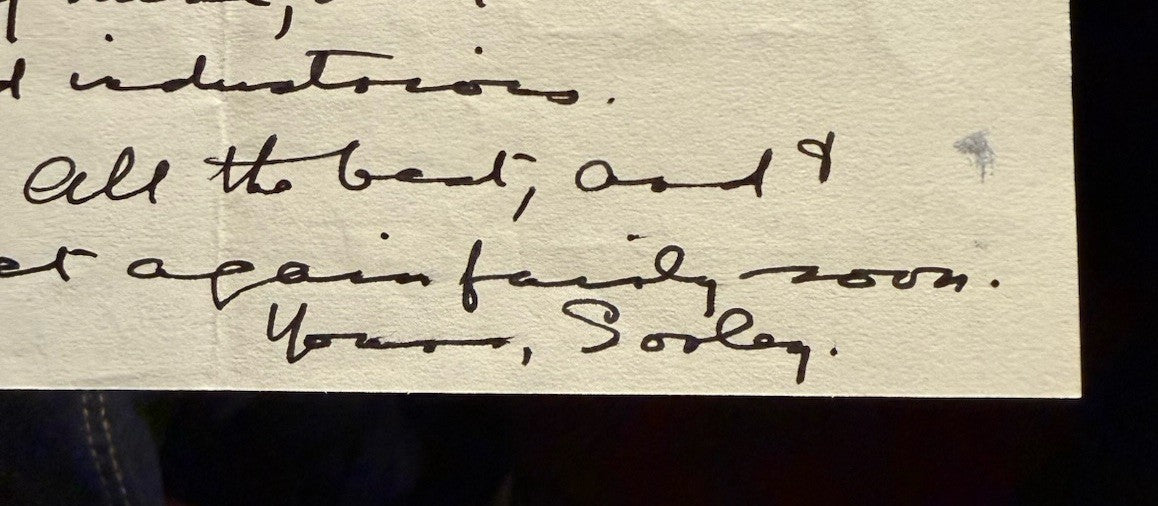 industrious.
All the best, and I
et again fairly soon.
Yours, Sorley.